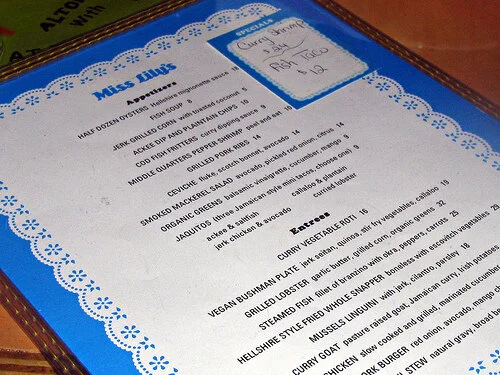 ALTO
with
SPECIALS
Curry Shrimp
$24
Fish Taco
$12
Miss Lily's
Appetizers
HALF DOZEN OYSTERS Hellshire mignonette sauce 18
FISH SOUP 8
JERK GRILLED CORN with toasted coconut 5
ACKEE DIP AND PLAINTAIN CHIPS 10
COD FISH FRITTERS curry dipping sauce 9
MIDDLE QUARTERS PEPPER SHRIMP peel and eat 10
GRILLED PORK RIBS 14
CEVICHE fluke, scotch bonnet, avocado 14
SMOKED MACKEREL SALAD avocado, pickled red onion, citrus 14
ORGANIC GREENS balsamic vinaigrette, cucumber, mango 9
JAQUITOS (three Jamaican style mini tacos, choose one) 9
ackee & saltfish callaloo & plantain
jerk chicken & avocado curried lobster
Entrees
CURRY VEGETABLE ROTI 16
VEGAN BUSHMAN PLATE jerk seitan, quinoa, stir fry vegetables, callaloo 19
GRILLED LOBSTER garlic butter, grilled corn, organic greens 32
STEAMED FISH fillet of branzino with okra, peppers, carrots 25
HELLSHIRE STYLE FRIED WHOLE SNAPPER boneless with escovitch vegetables 29
MUSSELS LINGUINI with jerk, cilantro, parsley 18
CURRY GOAT pasture raised goat, Jamaican curry, Irish potato
CHICKEN slow cooked and grilled, marinated cucumber
BURGER red onion, avocado, mango
STEW natural gravy, broad